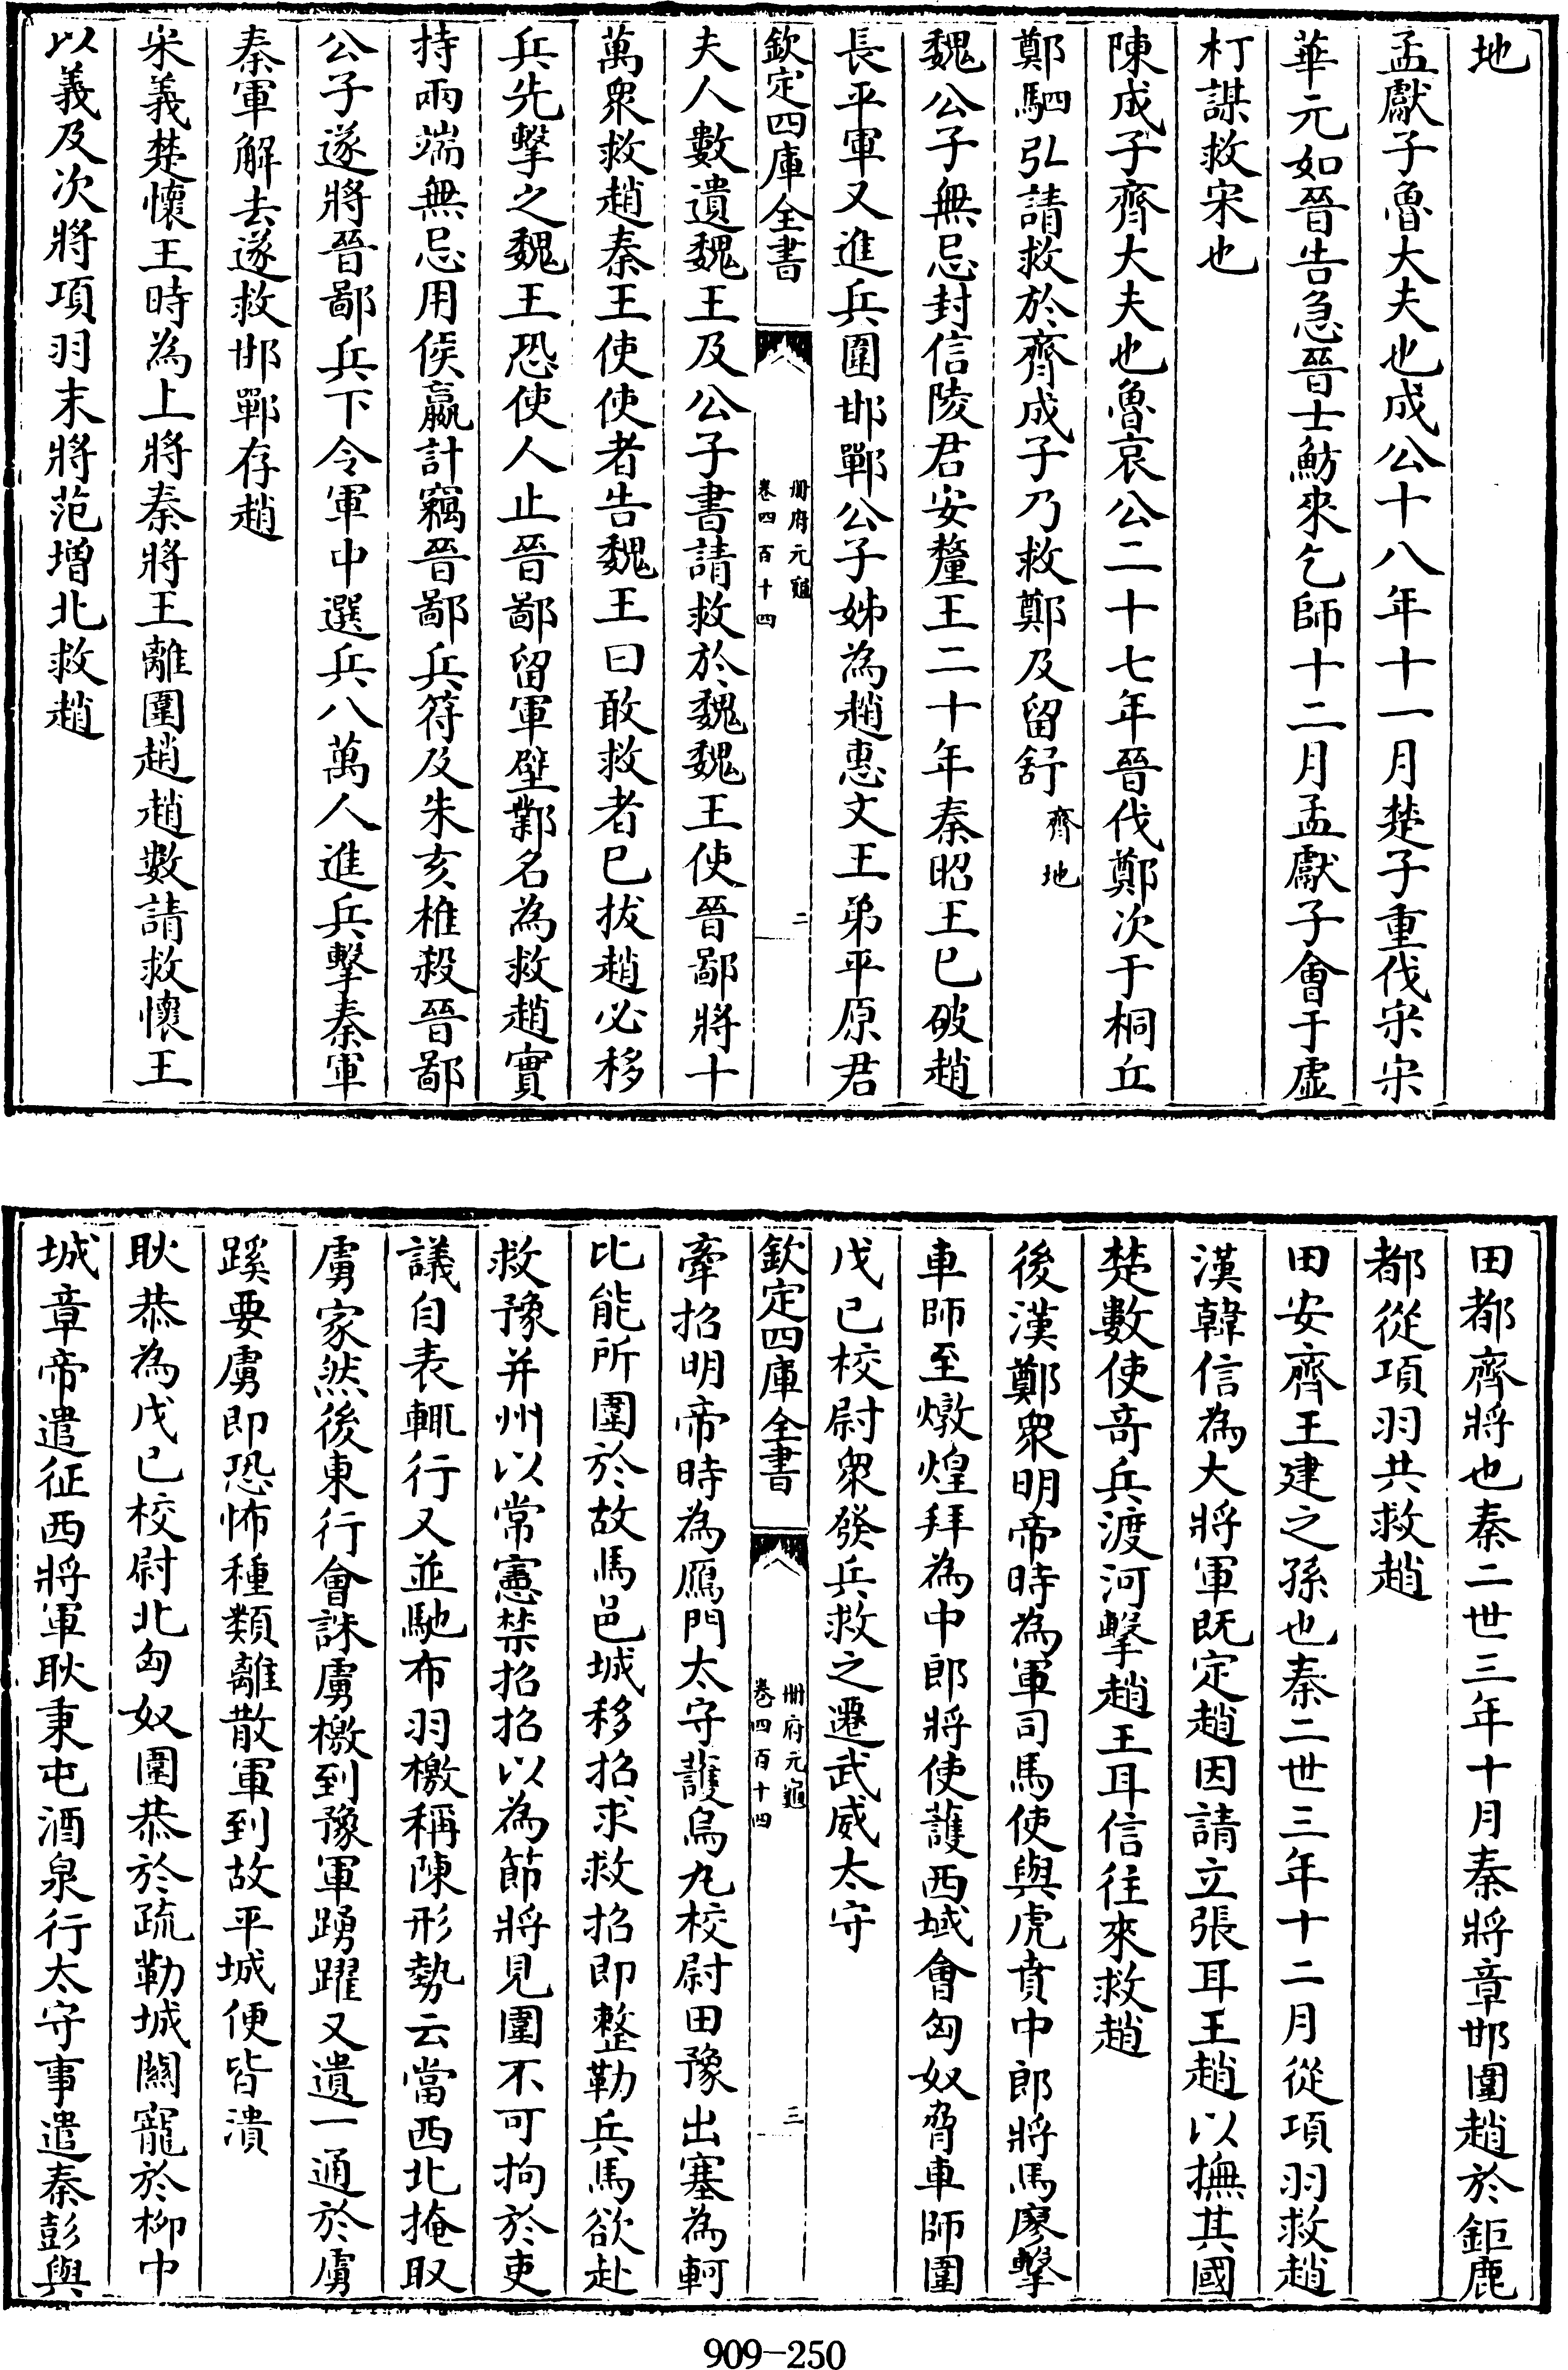 地
孟獻子魯大夫也成公十八年十一月楚子重伐宋宋
華元如晉告急晉士魴來乞師十二月孟獻子會于虛
朾謀救宋也
陳成子齊大夫也魯哀公二十七年晉伐鄭次于桐丘
鄭駟弘請救於齊成子乃救鄭及留舒齊地
魏公子無忌封信陵君安釐王二十年秦昭王已破趙
長平軍又進兵圍邯鄲公子姊為趙惠文王弟平原君
欽定四庫全書
冊府元龜
卷四百十四
二
夫人數遺魏王及公子書請救於魏魏王使晉鄙將十
萬衆救趙秦王使使者告魏王曰敢救者已拔趙必移
兵先擊之魏王恐使人止晉鄙留軍壁鄴名為救趙實
持兩端無忌用侯嬴計竊晉鄙兵符及朱亥椎殺晉鄙
公子遂將晉鄙兵下令軍中選兵八萬人進兵擊秦軍
秦軍解去遂救邯鄲存趙
宋義楚懷王時為上將秦將王離圍趙趙數請救懷王
以義及次將項羽末將范增北救趙
田都齊將也秦二世三年十月秦將章邯圍趙於鉅鹿
都從項羽共救趙
田安齊王建之孫也秦二世三年十二月從項羽救趙
漢韓信為大將軍既定趙因請立張耳王趙以撫其國
楚數使竒兵渡河擊趙王耳信往來救趙
後漢鄭衆明帝時為軍司馬使與虎賁中郎將馬廖擊
車師至燉煌拜為中郎將使護西域會匈奴脅車師圍
戊已校尉衆發兵救之遷武威太守
欽定四庫全書
冊府元龜
卷四百十四
三
牽招明帝時為鴈門太守護烏丸校尉田豫出塞為軻
比能所圍於故馬邑城移招求救招即整勒兵馬欲赴
救豫并州以常憲禁招招以為節將見圍不可拘於吏
議自表輒行又並馳布羽檄稱陳形勢云當西北掩取
虜家然後東行會誅虜檄到豫軍踴躍又遺一通於虜
蹊要虜即恐怖種類離散軍到故平城便皆潰
耿恭為戊已校尉北匈奴圍恭於疏勒城關寵於柳中
城章帝遣征西將軍耿秉屯酒泉行太守事遣秦彭與
909-250